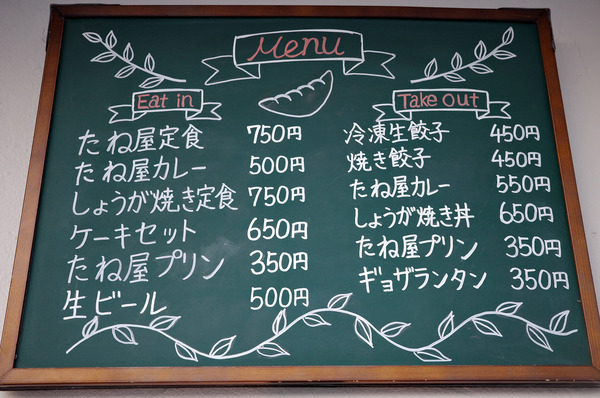 Menu
Eat in
たね屋定食 750円
たね屋カレー 500円
しょうが焼き定食 750円
ケーキセット 650円
たね屋プリン 350円
生ビール 500円
Take out
冷凍生餃子 450円
焼き餃子 450円
たね屋カレー 550円
しょうが焼き丼 650円
たね屋プリン 350円
ギョザランタン 350円